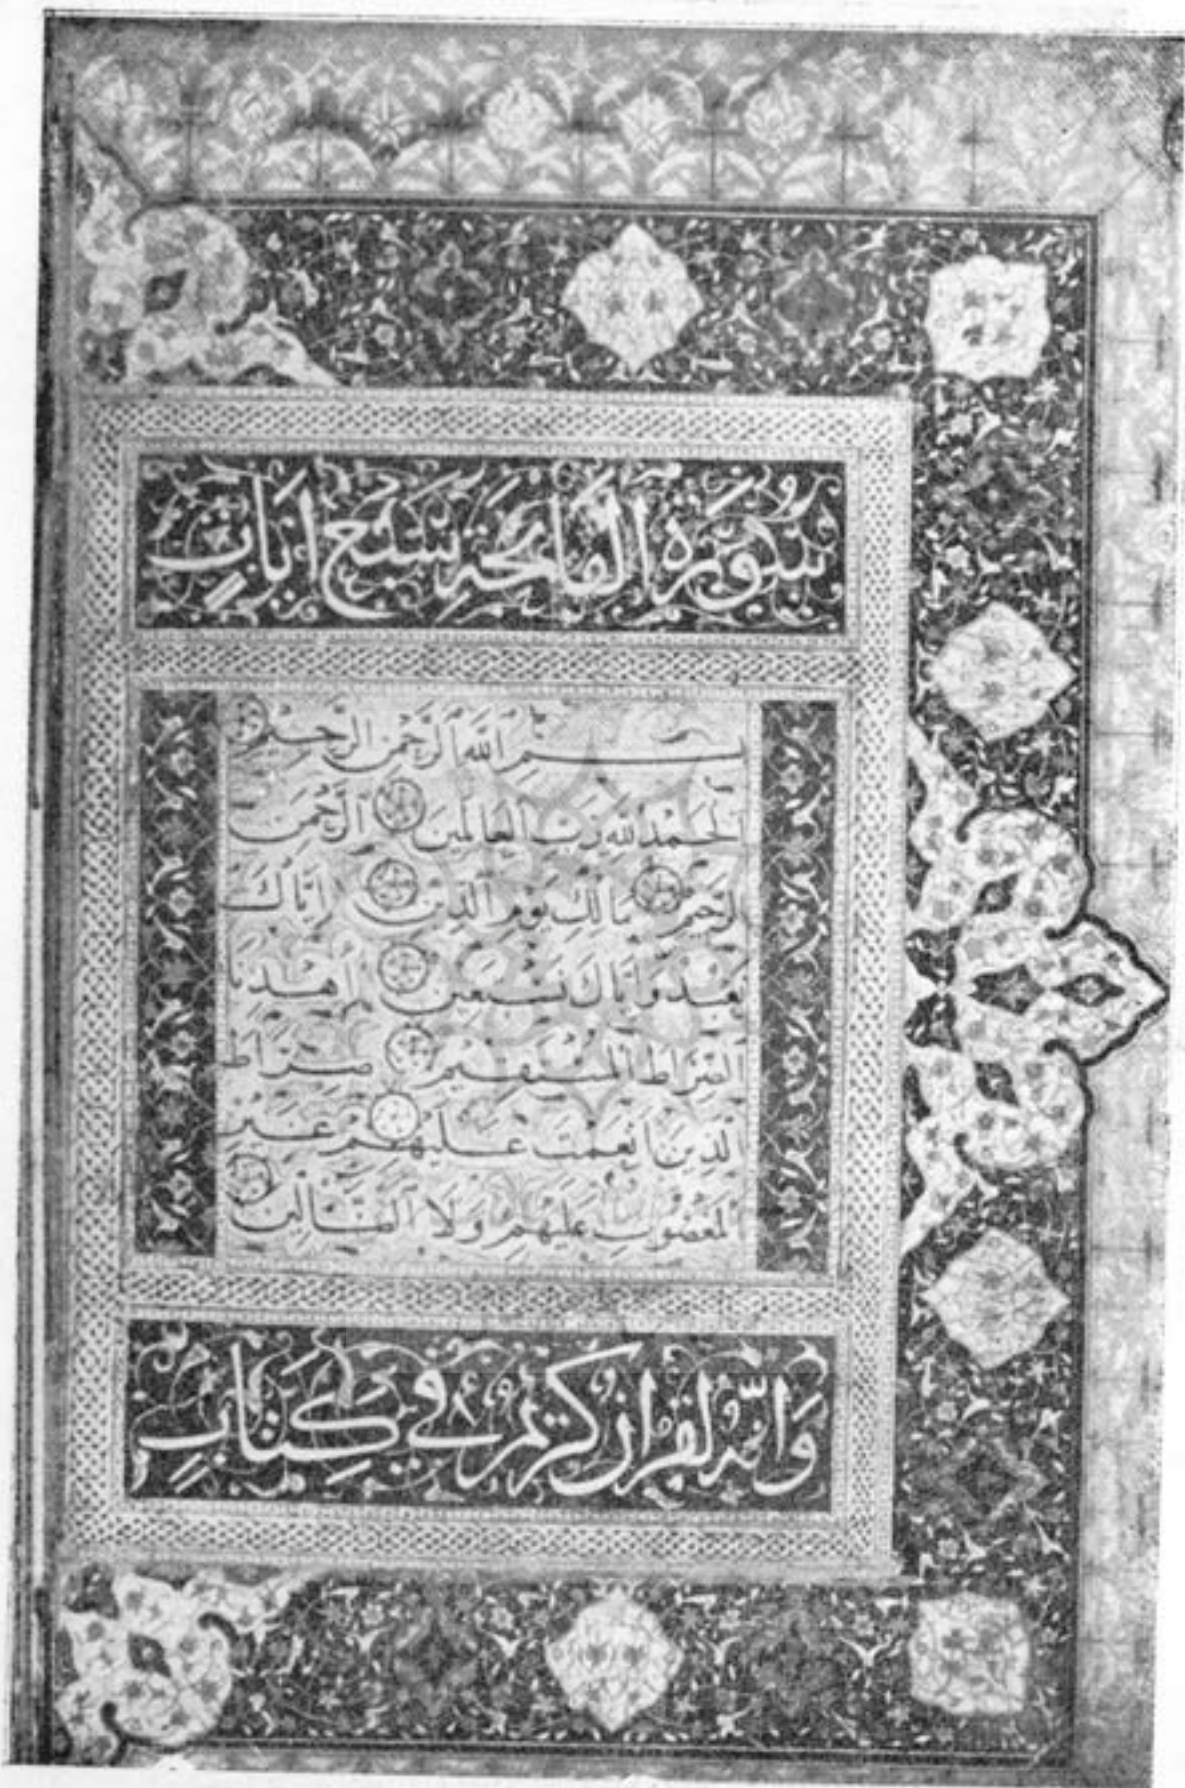 سُورَةُ الْفَاتِحَةِ سَبْعُ اٰيَاتٍ
بِسْمِ اللهِ الرَّحْمٰنِ الرَّحِيْمِ
اَلْحَمْدُ لِلّٰهِ رَبِّ الْعَالَمِيْنَ اَلرَّحْمٰنِ
الرَّحِيْمِ مَالِكِ يَوْمِ الدِّيْنِ اِيَّاكَ
نَعْبُدُ وَاِيَّاكَ نَسْتَعِيْنُ اِهْدِنَا
الصِّرَاطَ الْمُسْتَقِيْمَ صِرَاطَ
الَّذِيْنَ اَنْعَمْتَ عَلَيْهِمْ غَيْرِ
الْمَغْضُوْبِ عَلَيْهِمْ وَلَا الضَّالِّيْنَ
وَاِنَّهُ لَقُرْاٰنٌ كَرِيْمٌ فِي كِتَابٍ